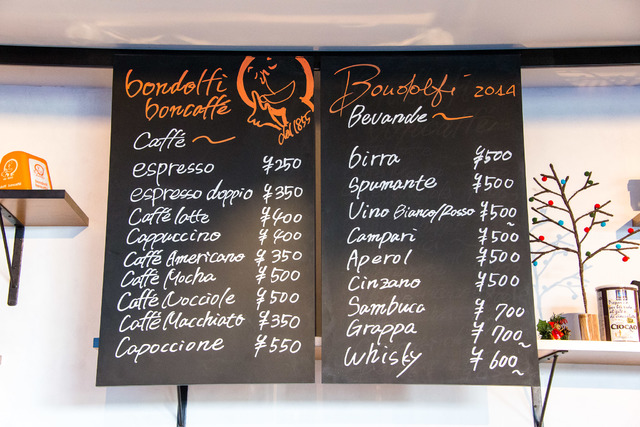 bondolfi
boncaffē
dal 1855
Caffé
espresso ¥250
espresso doppio ¥350
Caffé latte ¥400
Cappuccino ¥400
Caffé Americano ¥350
Caffé Mocha ¥500
Caffé Nocciole ¥500
Caffé Macchiato ¥350
Capoccione ¥550
Bondolfi 2014
Bevande
birra ¥500
Spumante ¥500
Vino Bianco/Rosso ¥500~
Campari ¥500
Aperol ¥500
Cinzano ¥500
Sambuca ¥700
Grappa ¥700~
Whisky ¥600~
CIOCAO